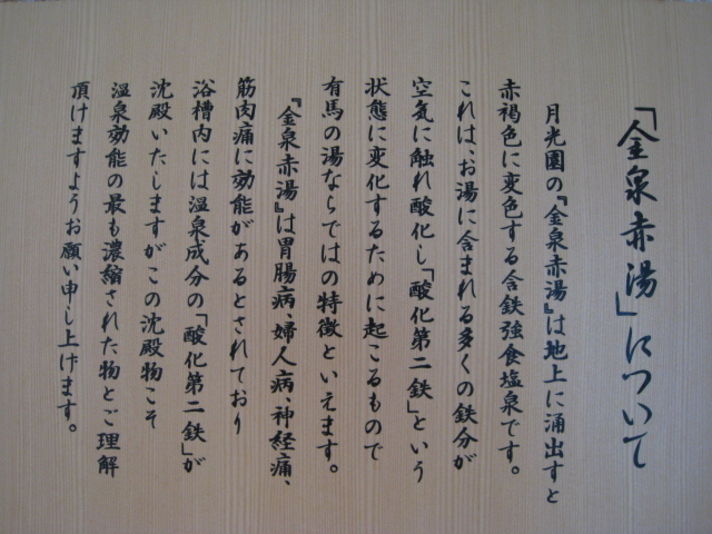 「金泉赤湯」について
月光園の『金泉赤湯』は地上に涌出すと
赤褐色に変色する含鉄強食塩泉です。
これは、お湯に含まれる多くの鉄分が
空気に触れ酸化し「酸化第二鉄」という
状態に変化するために起こるもので
有馬の湯ならではの特徴といえます。
『金泉赤湯』は胃腸病、婦人病、神経痛、
筋肉痛に効能があるとされており
浴槽内には温泉成分の「酸化第二鉄」が
沈殿いたしますがこの沈殿物こそ
温泉効能の最も濃縮された物とご理解
頂けますようお願い申し上げます。